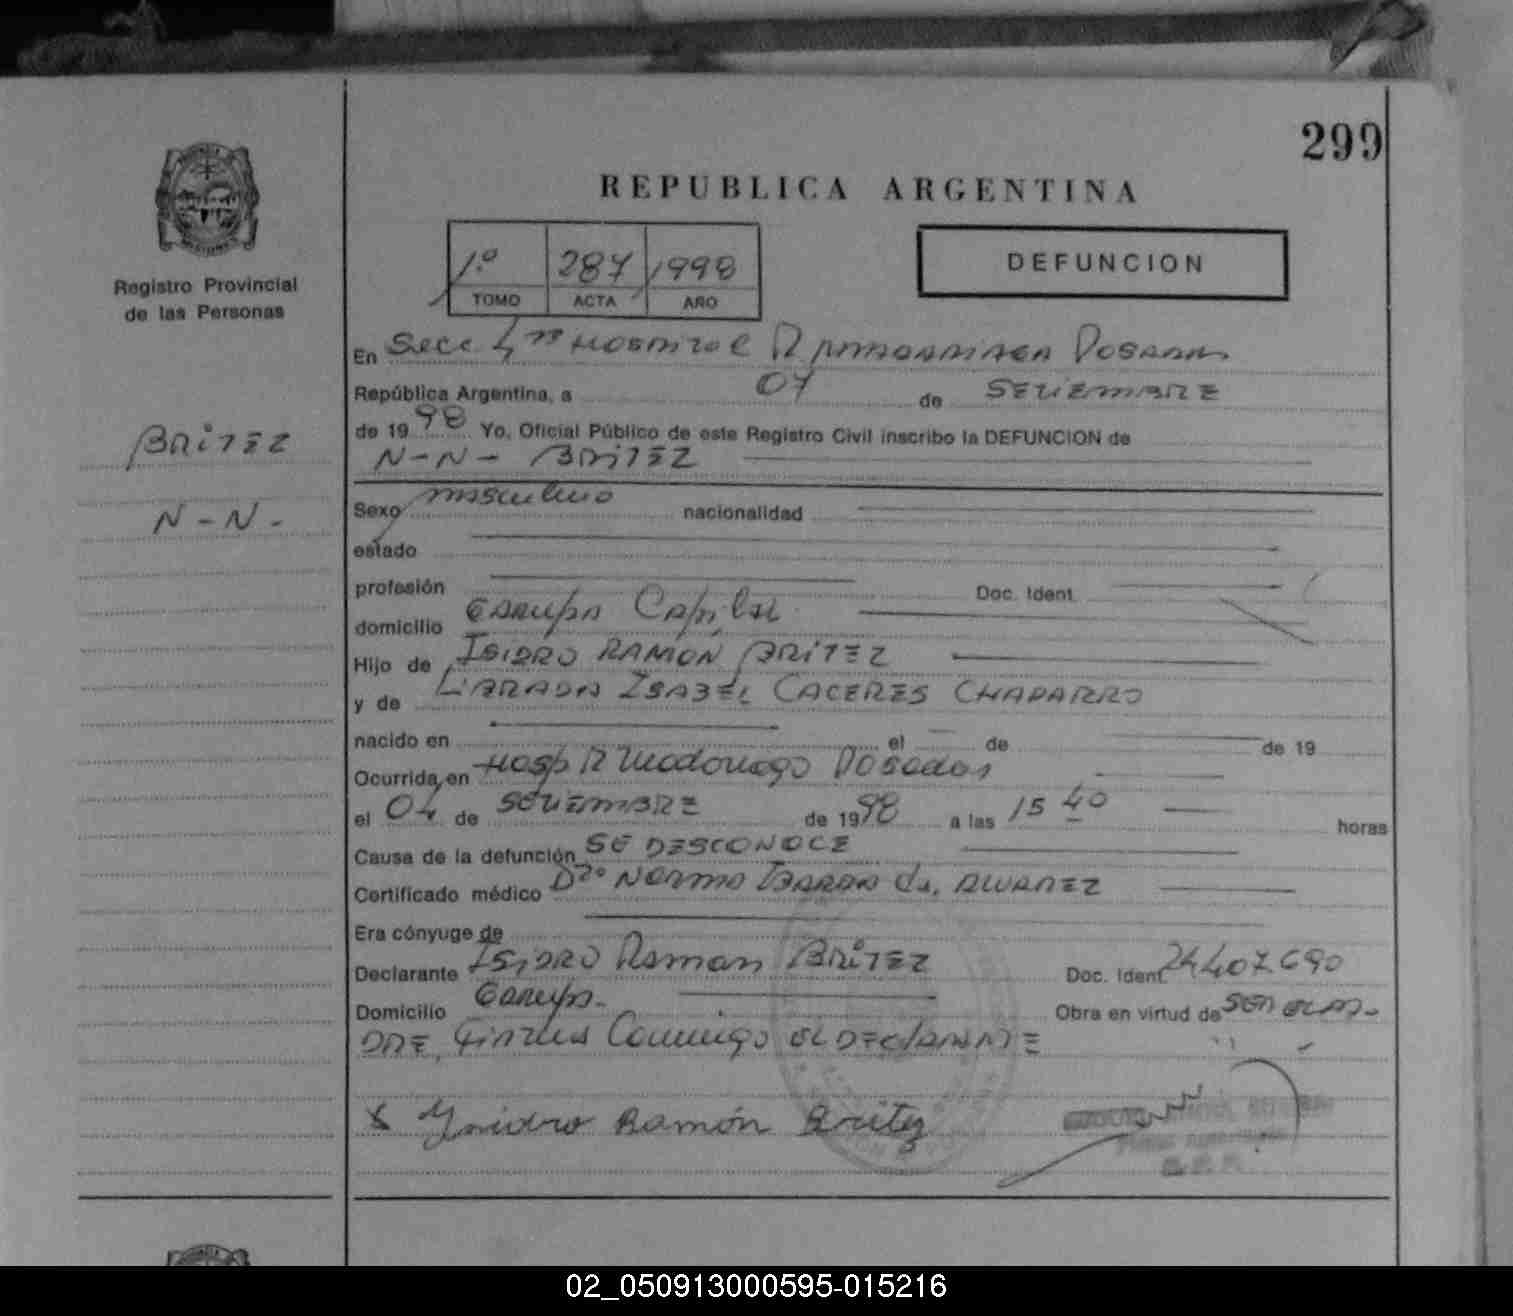 299
REPUBLICA ARGENTINA
Registro Provincial
de las Personas
1º 287 1998
TOMO ACTA AÑO
DEFUNCION
En Secc 4ta Hospital R Madariaga Posadas
República Argentina, a 07 de SETIEMBRE
de 1998 Yo, Oficial Público de este Registro Civil inscribo la DEFUNCION de
N-N- BRITEZ
BRITEZ
N-N-
Sexo masculino nacionalidad
estado
profesión Doc. Ident.
domicilio Garupa Capital
Hijo de ISIDRO RAMON BRITEZ
y de LIBRADA ISABEL CACERES CHAPARRO
nacido en el de de 19
Ocurrida en Hosp R Madariaga Posadas
el 04 de SETIEMBRE de 1998 a las 15 40 horas
Causa de la defunción SE DESCONOCE
Certificado médico Dra Norma de ALVAREZ
Era cónyuge de
Declarante ISIDRO Ramon BRITEZ Doc. Ident 24407.690
Domicilio Garupa- Obra en virtud de SER EL PA-
DRE, Firma Conmigo EL DECLARANTE
x Ysidro Ramón Britez
02_050913000595-015216